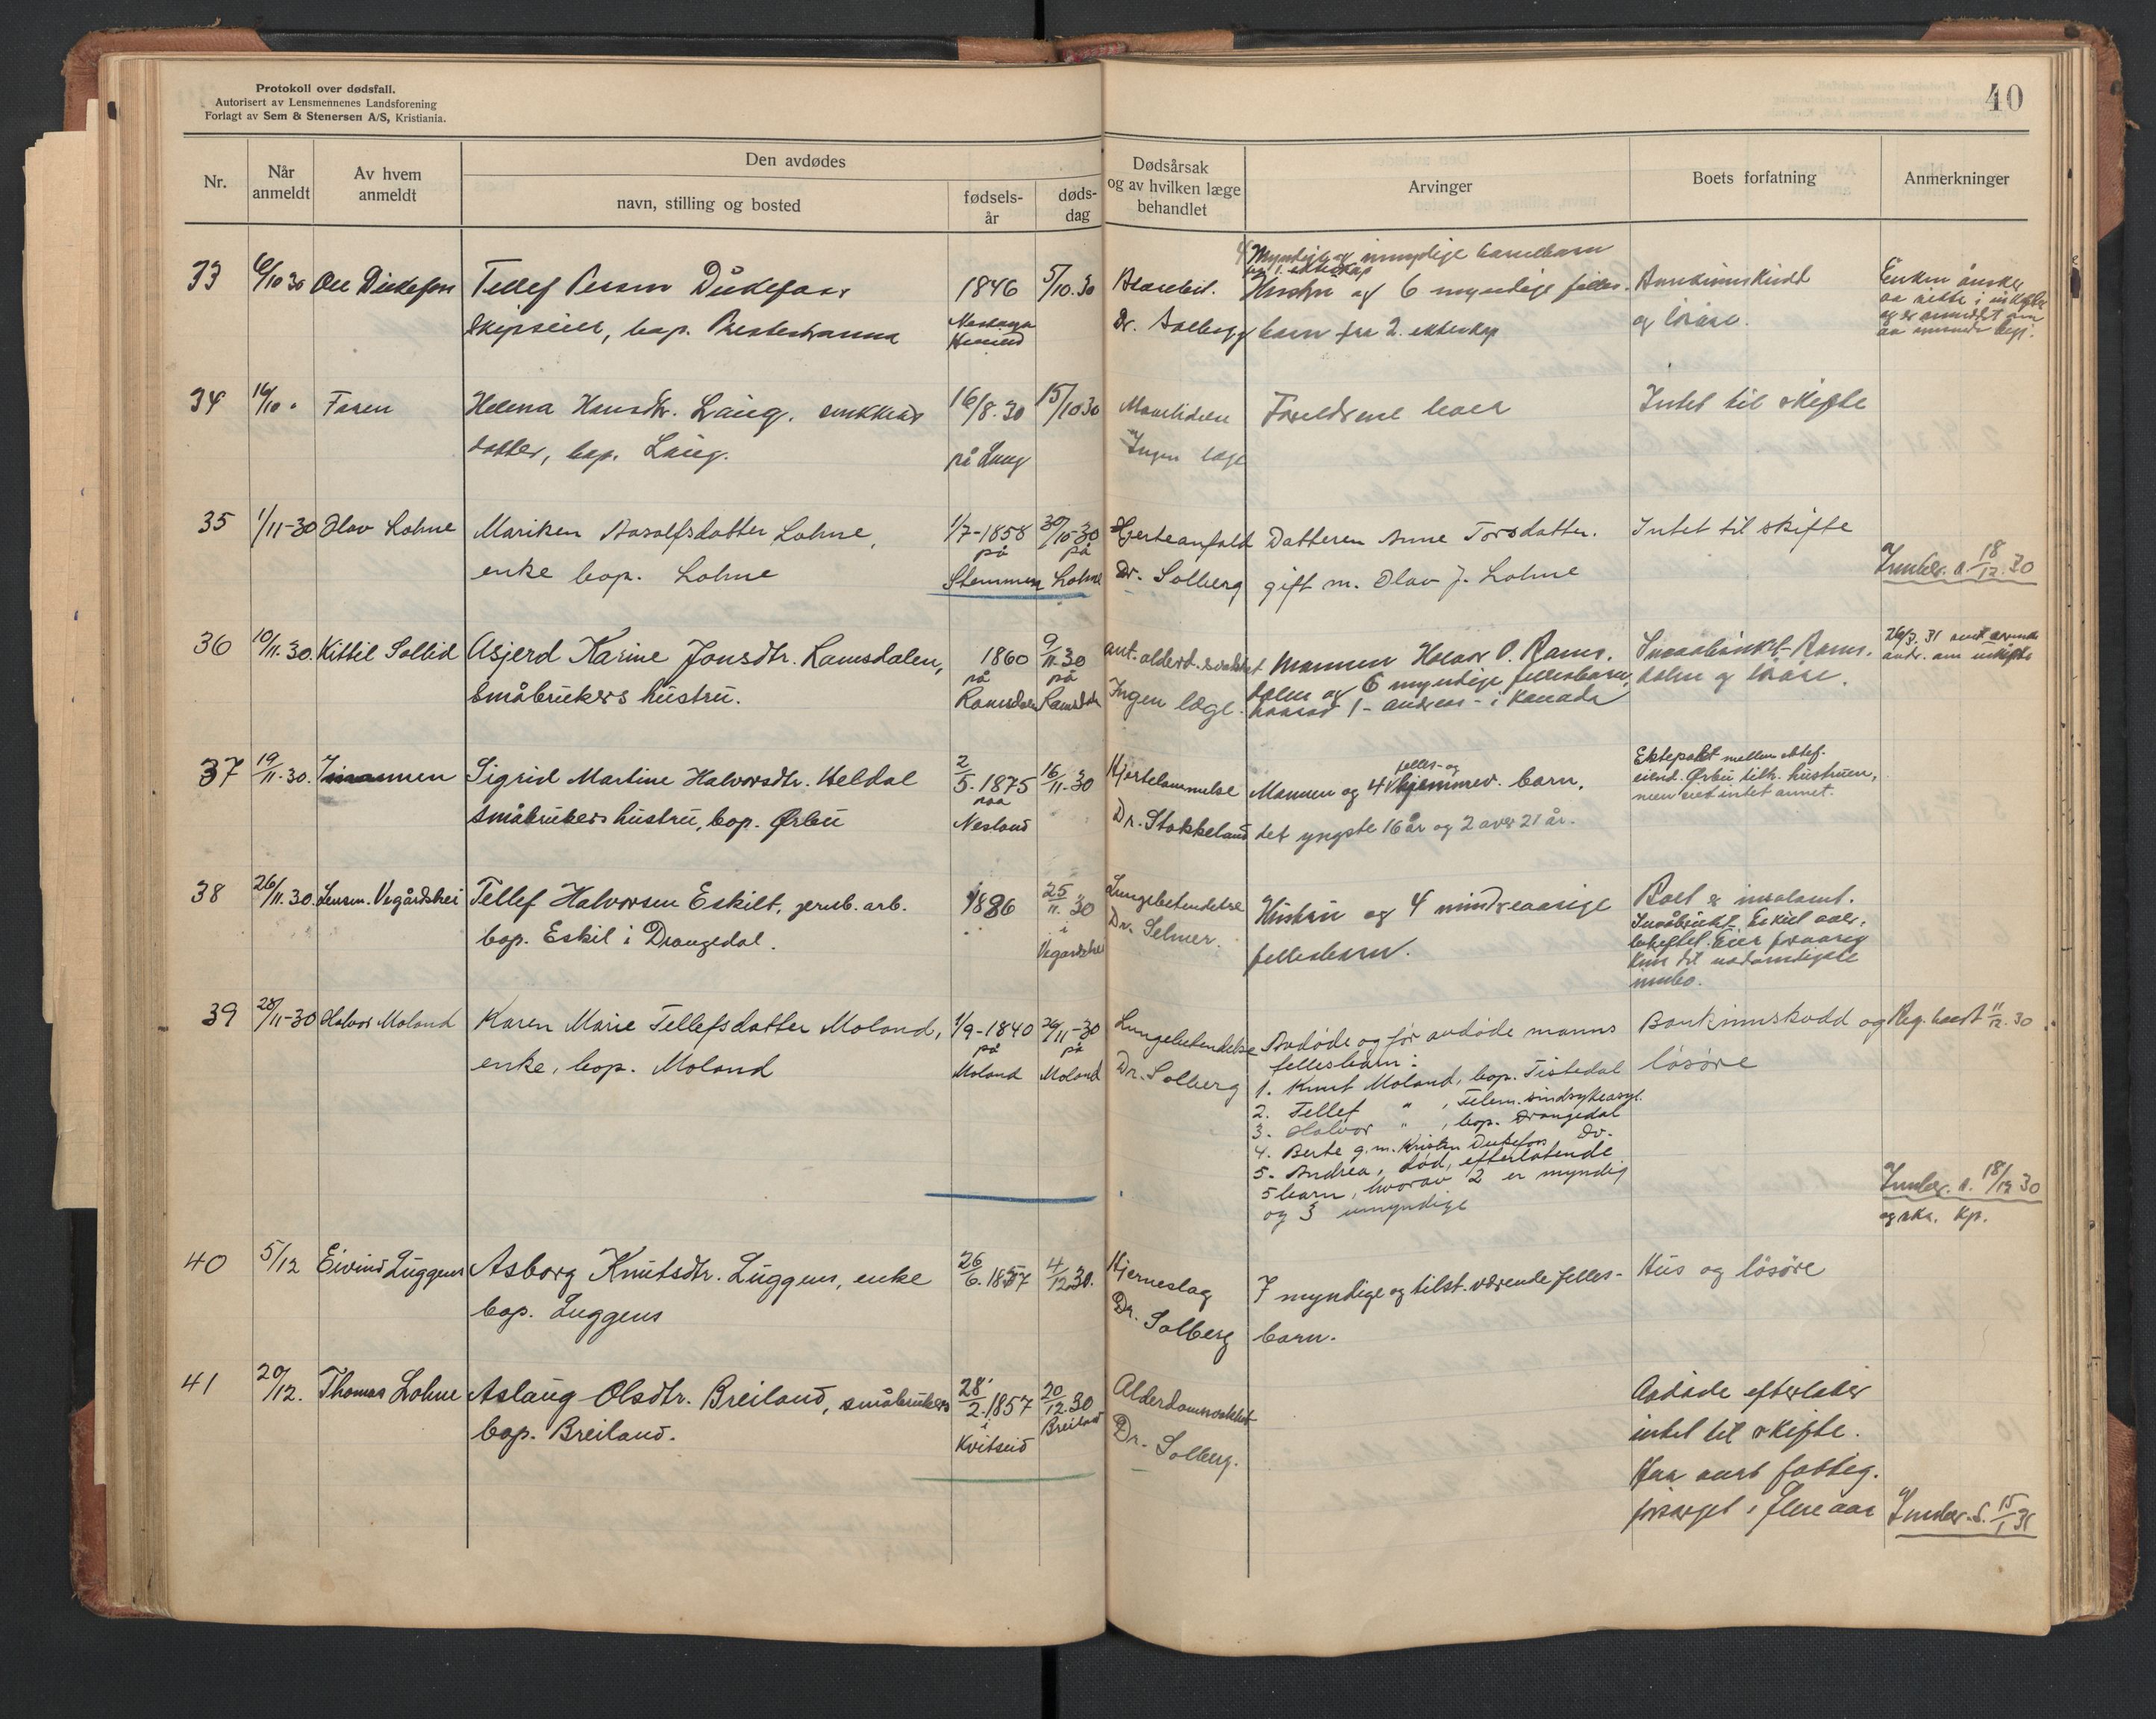 Protokoll over dødsfall.
Autorisert av Lensmennenes Landsforening
Forlagt av Sem & Stenersen A/S, Kristiania.
40
Nr.
Når anmeldt
Av hvem anmeldt
Den avdødes
navn, stilling og bosted
fødsels-år
døds-dag
Dødsårsak og av hvilken læge behandlet
Arvinger
Boets forfatning
Anmerkninger
33 6/10 30 Tellef 1846 5/10.30 4 Myndige og umyndige barnebarn
fra 1. ekteskap
Hustru og 6 myndige felles-
bop. Dr. barn fra 2. ekteskap
og løsøre.
Enken ønsker
34 14/10 Faren Helena Hansdtr. Laug. 16/8.30 15/10 30 Foreldrene lever Intet til skifte
datter, bop. Laug. på Laug Ingen læge
35 1/11-30 Olav Lohne Mariken Aasolfsdatter Lohne, 1/7-1858 30/10-30 Hjerteanfald Datteren Anne Torsdatter. Intet til skifte
enke bop. Lohne på Stemmen på Lohne Dr. Solberg gift m. Olav J. Lohne
Innber. s. 18/12.30
36 10/11.30. Kittil Sollid Asjerd Karine Jonsdtr. Ramsdalen, 1860 9/11.30 ant. alderd. svakhet Mannen Halvor O. Rams-
Småbrukers hustru. på Ramsdalen på Ramsdalen Ingen læge. dalen og 6 myndige fellesbarn, dalen og løsøre.
hvorav 1 - Andreas - i Kanada
26/3.31
37 19/11.30. mannen Sigrid Martine Halvorsdtr. Heldal 2/5.1875 16/11.30 Hjertelammelse Mannen og 4 felles- og hjemmev. barn,
småbrukers hustru, bop. Ørbu paa Nesland Dr. Stokkeland det yngste 16 år og 2 over 21 år.
Ektepakt mellem ektef.
eiend. Ørbu tilh. hustruen,
men intet annet.
38 26/11.30. Lensm. Vegårdshei Tellef Halvorsen Eskilt, jernb. arb. 1886 25/11.30 Lungebetendelse Hustru og 4 mindreaarige Boet er insolvent.
bop. Eskil i Drangedal. i Vegårdshei Dr. Selmer. fellesbarn.
Småbruket Eskil
beheftet.
kun det nødvendigste
innbo.
39 28/11-30 Halvor Moland Karen Marie Tellefsdatter Moland, 1/9-1840 26/11-30 Lungebetendelse Avdøde og før avdøde manns Bankinnskudd og
enke, bop. Moland på Moland på Moland Dr. Solberg fellesbarn: løsøre
Reg. 11/12.30
1. Knut Moland, bop. Tistedal
2. Tellef " , Telem. sindsykeasyl.
3. Halvor " , bop. Drangedal
4. Berte g.m. Kristen Dukefoss Do.
5. Andrea, død, efterlatende
5 barn, hvorav 2 er myndig
og 3 umyndige
Innber. s. 18/12 30
40 5/12 Eivind Luggens Asborg Knutsdtr. Luggens, enke 26/6.1857 4/12.30. Hjerneslag 7 myndige og tilst. værende felles- Hus og løsøre
bop. Luggens Dr. Solberg barn.
41 20/12. Thomas Lohne Aslaug Olsdtr. Breiland, småbrukers 28/2.1857 20/12.30 Alderdomssvakhet Avdøde efterlater
bop. Breiland. i Kvitseid Breiland Dr. Solberg. intet til skifte.
Har vært fattig-
forsørget i flere aar
Innber. s. 15/1 31